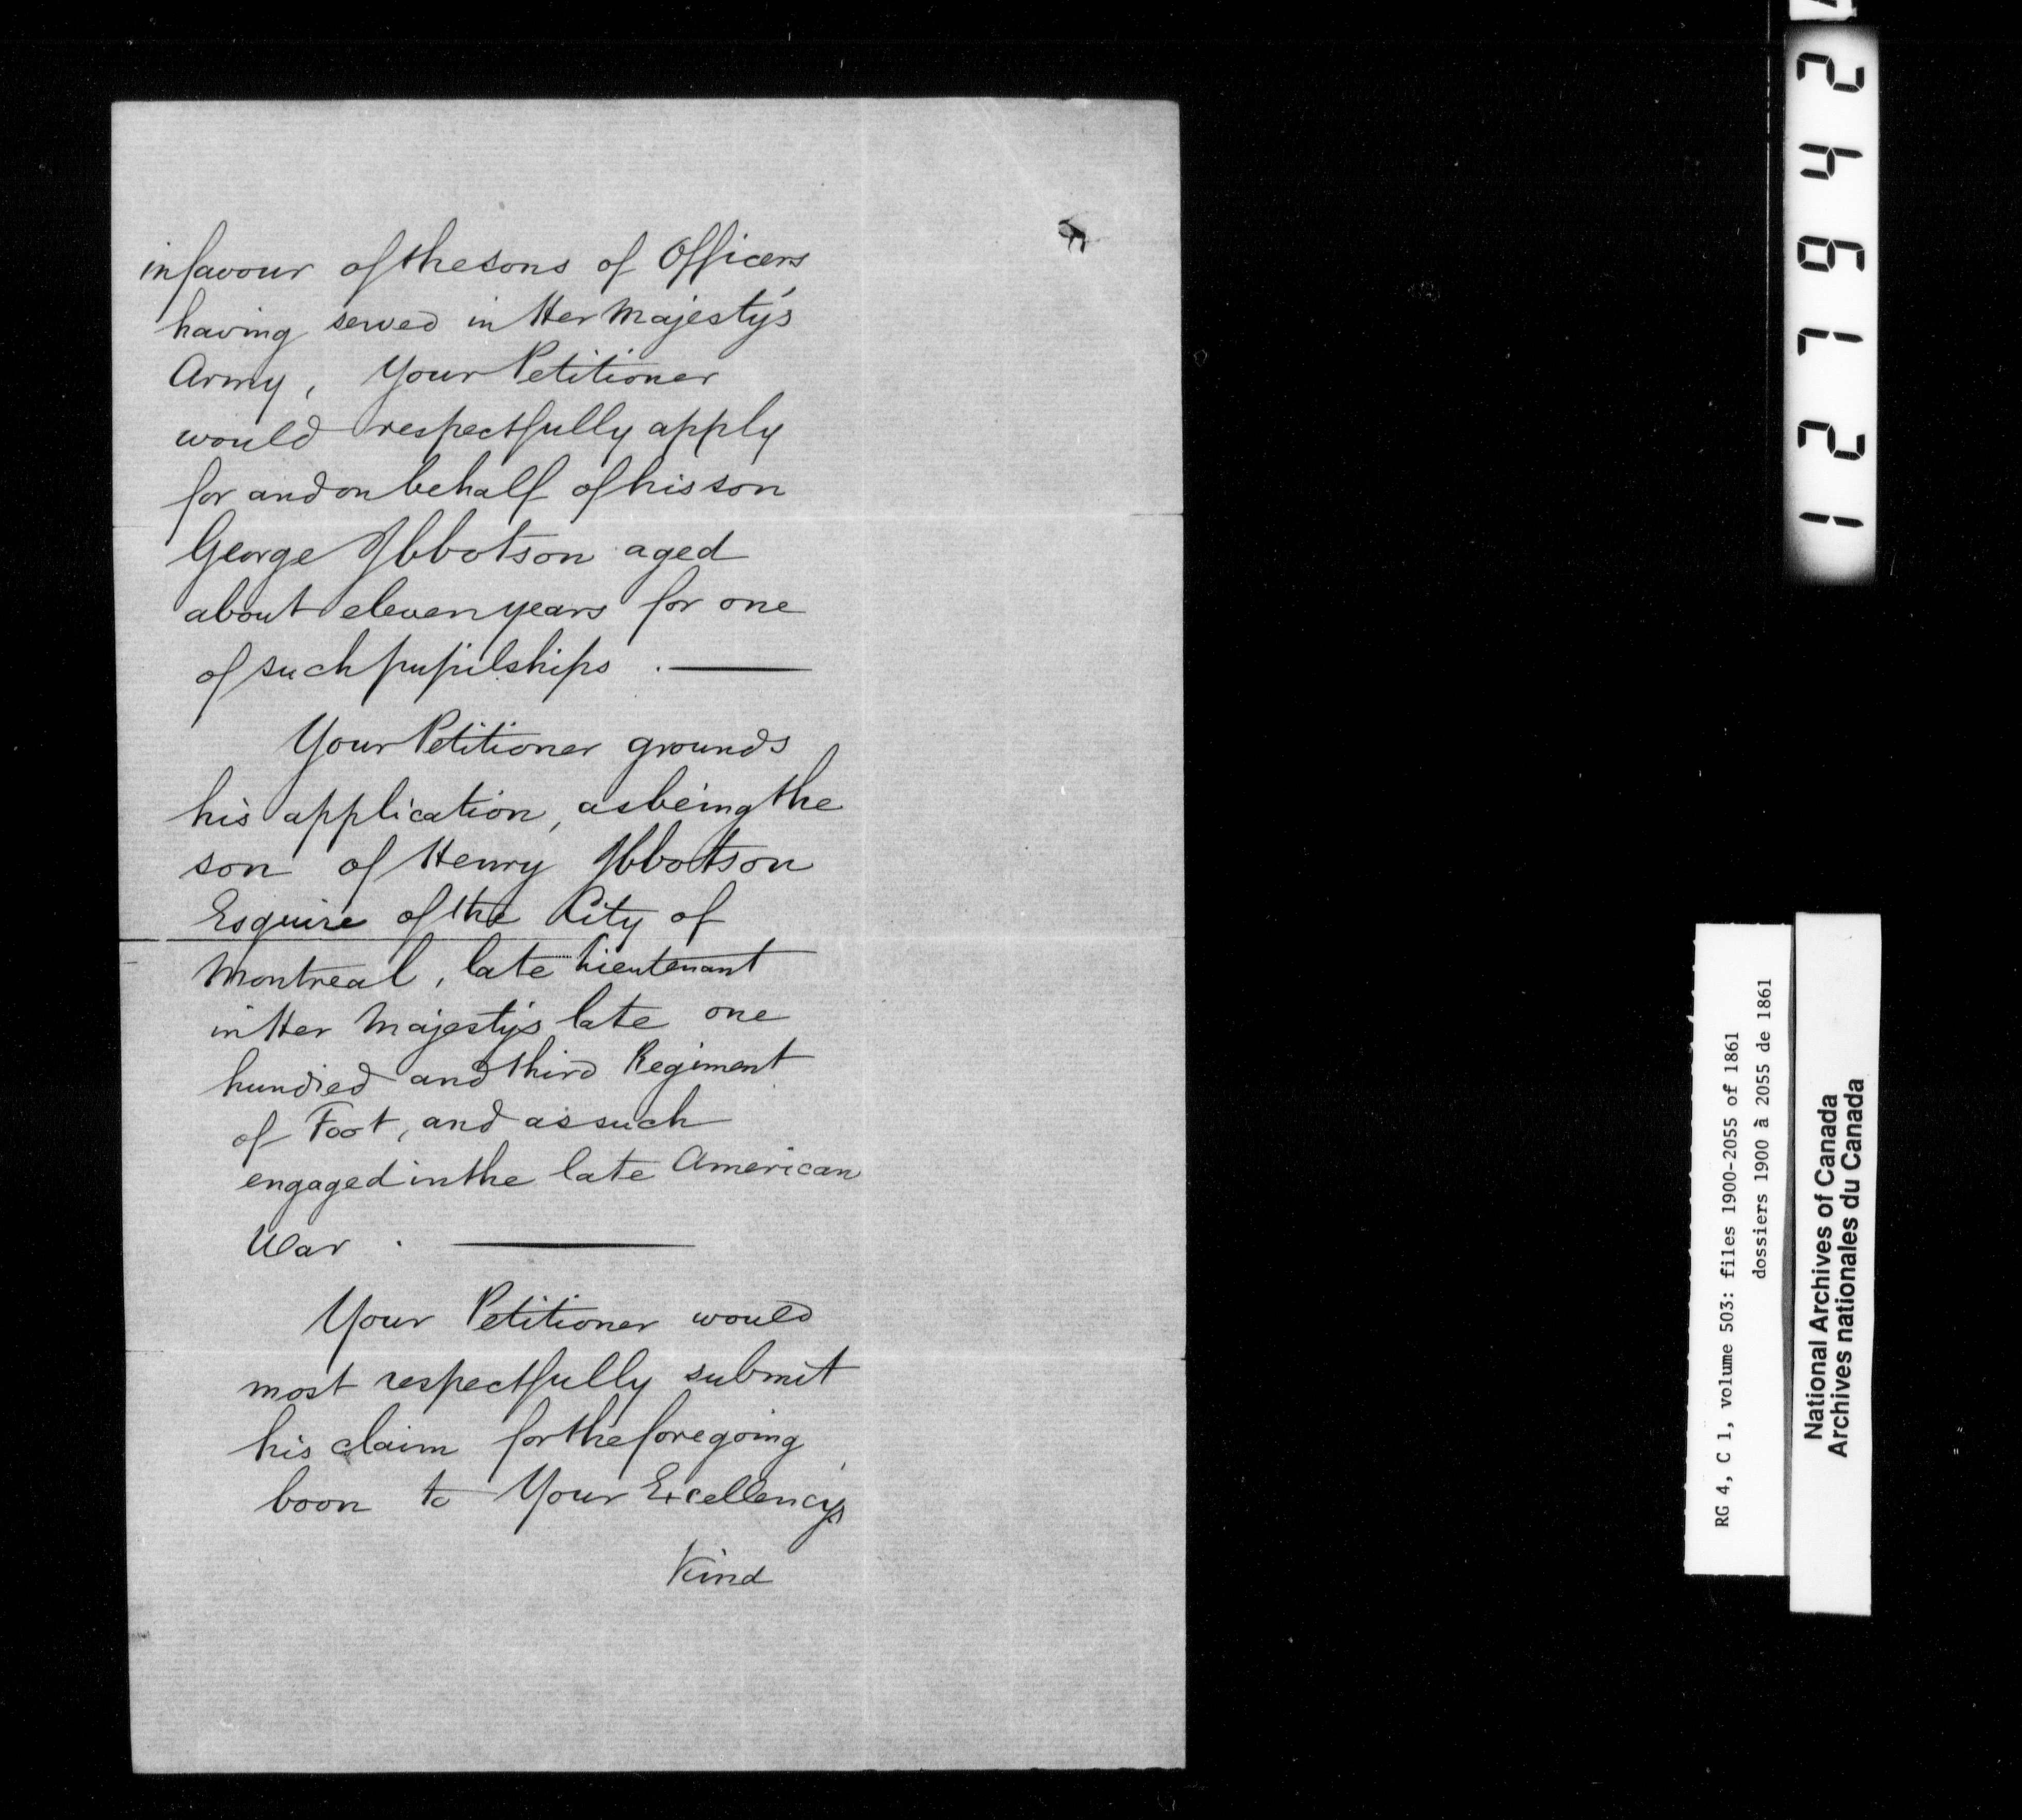 in favour of the sons of Officers
having served in Her Majesty's
Army, Your Petitioner
would respectfully apply
for and on behalf of his son
George Ibbotson aged
about eleven years for one
of such pupilships . —
Your Petitioner grounds
his application, as being the
son of Henry Ibbotson
Esquire of the City of
Montreal, late Lieutenant
in Her Majesty's late one
hundred and third Regiment
of Foot, and as such
engaged in the late American
War . —
Your Petitioner would
most respectfully submit
his claim for the foregoing
boon to Your Excellency's
Kind
127942
RG 4, C 1, volume 503: files 1900-2055 of 1861
dossiers 1900 à 2055 de 1861
National Archives of Canada
Archives nationales du Canada